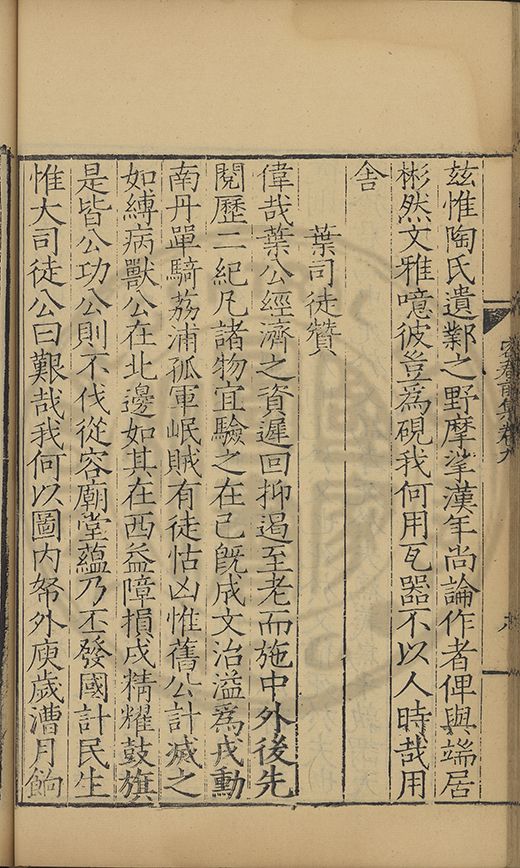 玆惟陶氏遺鄴之野摩挲漢年尚論作者俾與端居
彬然文雅噫彼豈爲硯我何用瓦器不以人時哉用
舍
葉司徒贊
偉哉葉公經濟之資遲回抑遏至老而施中外後先
閱歷二紀凡諸物宜驗之在己旣成文治溢爲戎勳
南丹單騎荔浦孤軍岷賊有徒怙凶惟舊公計滅之
如縛病獸公在北邊如其在西益障損戍精耀鼓旗
是皆公功公則不伐從容廟堂蘊乃丕發國計民生
惟大司徒公曰艱哉我何以圖内帑外庾歲漕月餉